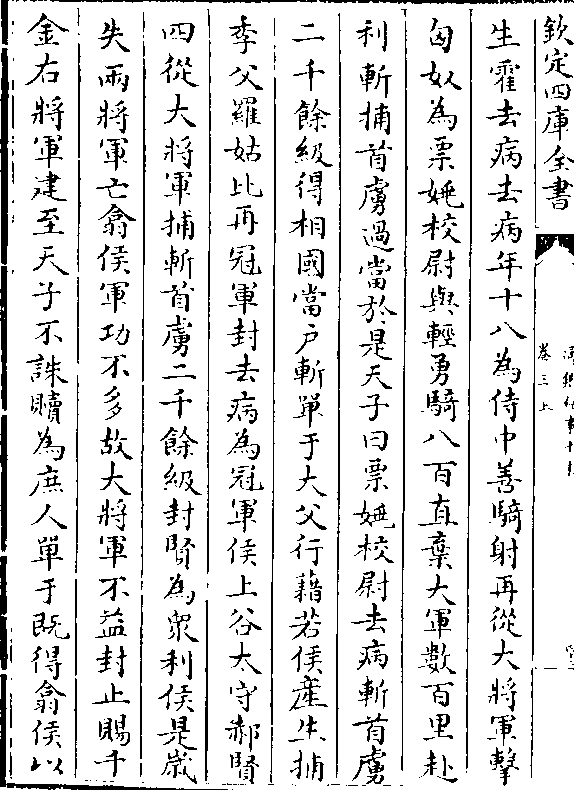 欽定四庫全書
卷三上
生霍去病去病年十八為侍中善騎射再從大將軍擊
匈奴為票姚校尉與輕勇騎八百直棄大軍數百里赴
利斬捕首虜過當於是天子曰票姚校尉去病斬首虜
二千餘級得相國當户斬單于大父行藉若侯產生捕
季父羅姑比再冠軍封去病為冠軍侯上谷太守郝賢
四從大將軍捕斬首虜二千餘級封賢為衆利侯是歲
失兩將軍亡翕侯軍功不多故大將軍不益封止賜千
金右將軍建至天子不誅贖為庶人單于既得翕侯以